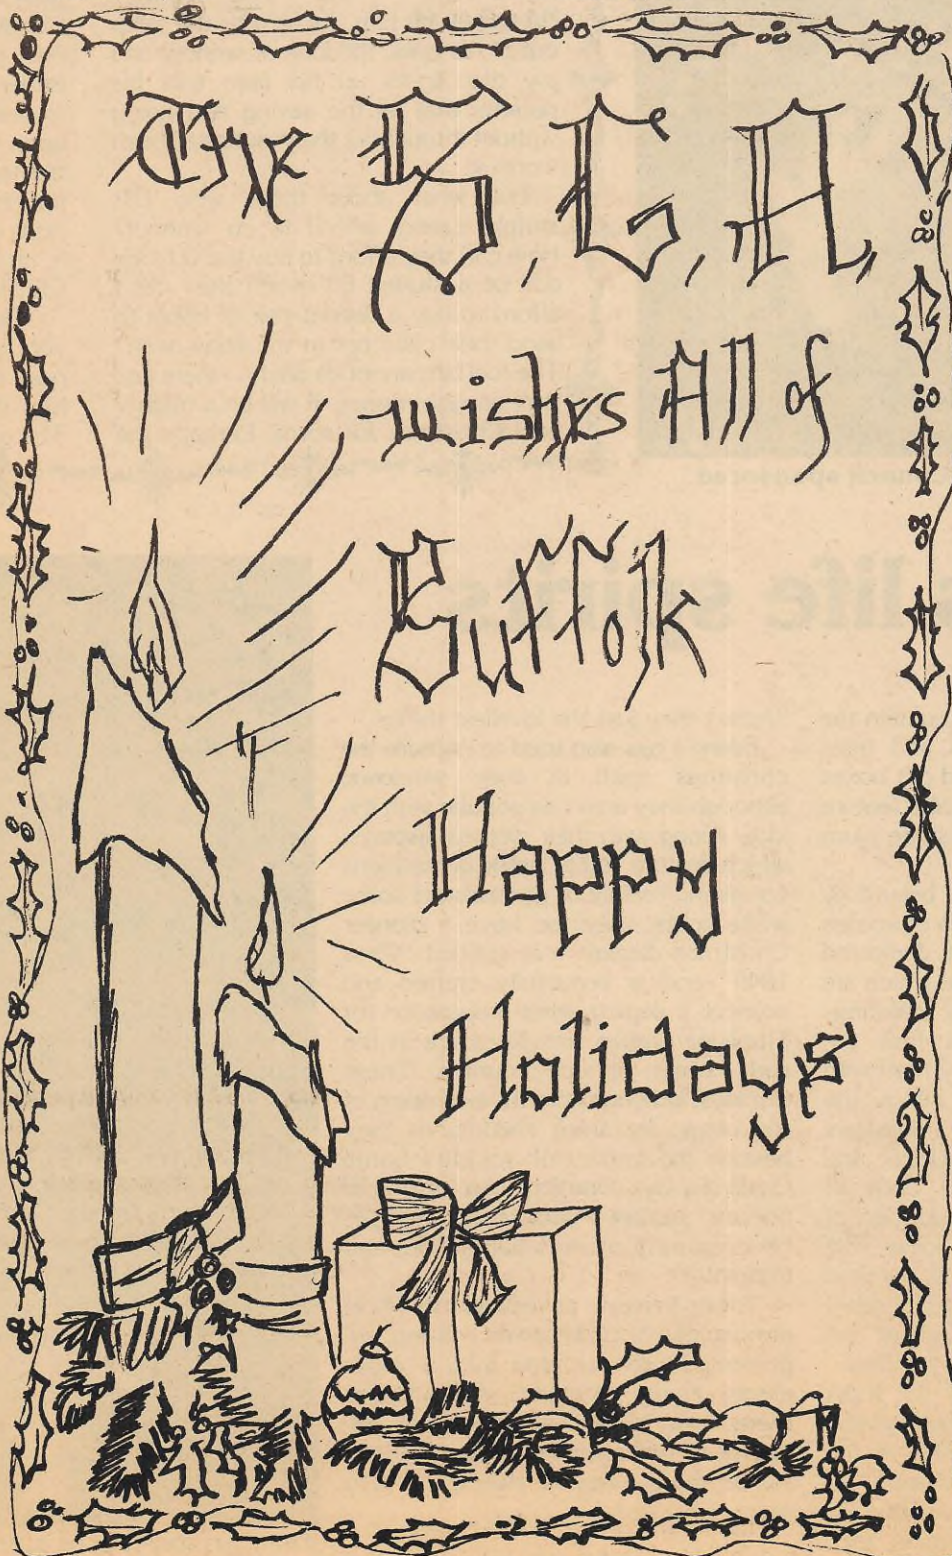 The S.G.A.
wishes All of
Suffolk
Happy
Holidays